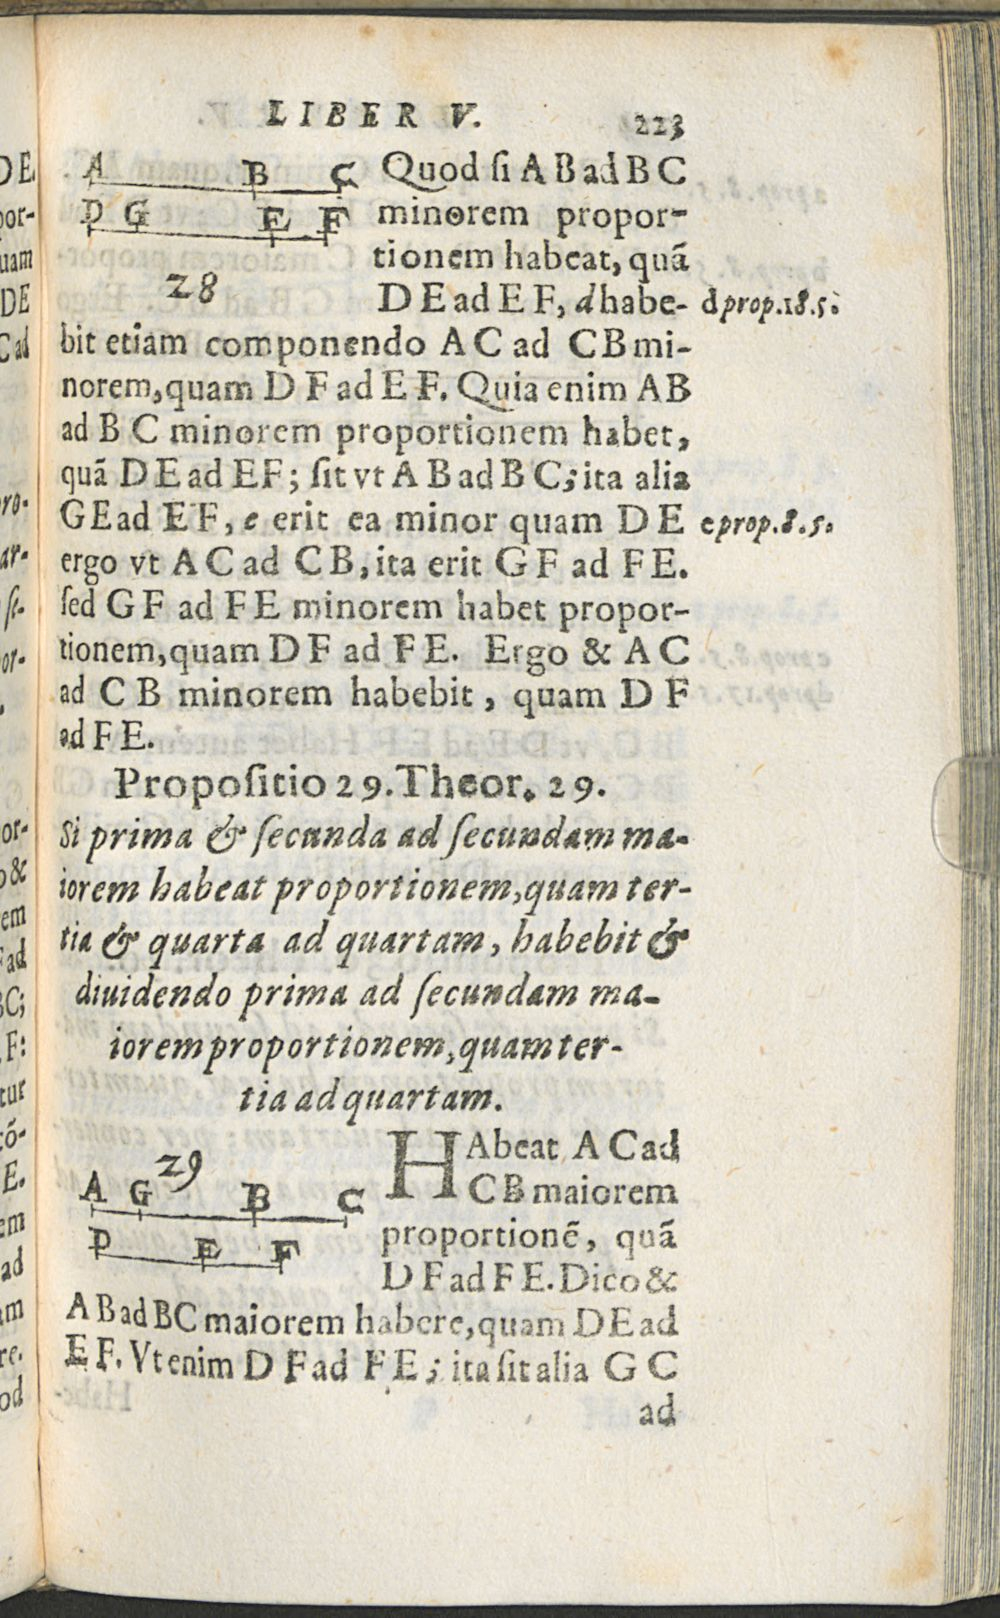 LIBER V. 223
A B C
D G E F
28
Quod ſi A B ad B C
minorem propor-
tionem habeat, quã
D E ad E F, d habe- d prop.18.5.
bit etiam componendo A C ad C B mi-
norem, quam D F ad E F. Quia enim A B
ad B C minorem proportionem habet,
quã D E ad E F; ſit vt A B ad B C; ita alia
G E ad E F, e erit ea minor quam D E e prop.8.5.
ergo vt A C ad C B, ita erit G F ad F E.
ſed G F ad F E minorem habet propor-
tionem, quam D F ad F E. Ergo & A C
ad C B minorem habebit, quam D F
ad F E.
Propoſitio 29. Theor. 29.
Si prima & ſecunda ad ſecundam ma-
iorem habeat proportionem, quam ter-
tia & quarta ad quartam, habebit &
diuidendo prima ad ſecundam ma-
iorem proportionem, quam ter-
tia ad quartam.
29
A G B C
D E F
HAbeat A C ad
C B maiorem
proportionẽ, quã
D F ad F E. Dico &
A B ad B C maiorem habere, quam D E ad
E F. Vt enim D F ad F E; ita ſit alia G C
ad